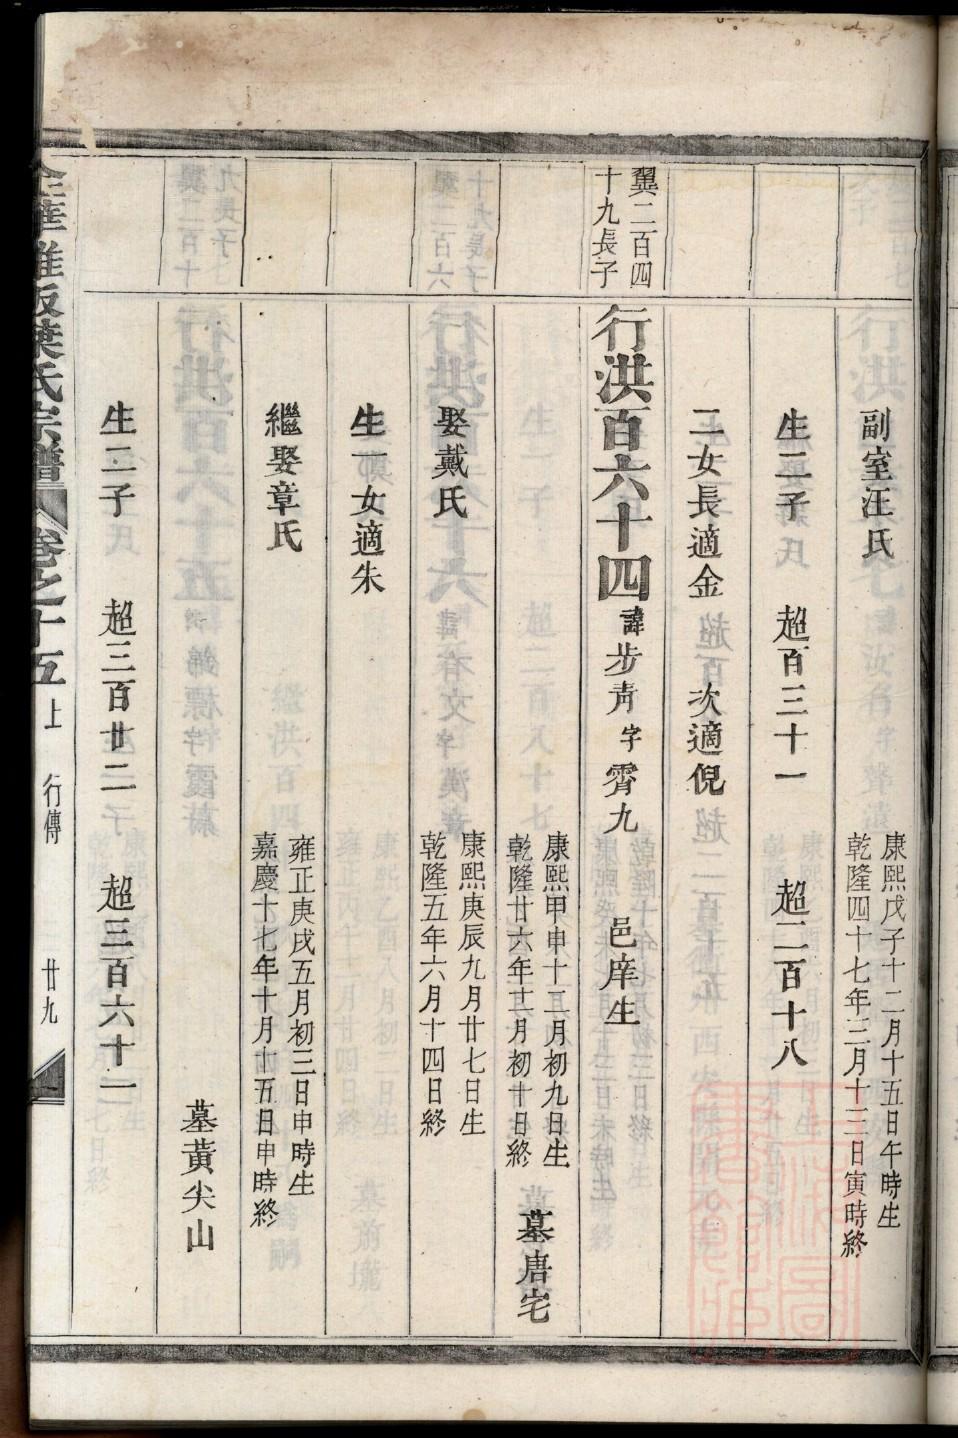 副室汪氏
康熙戊子十二月十五日午時生
乾隆四十七年三月十三日寅時終
生二子 超百三十一 超二百十八
二女長適金 次適倪
翼二百四
十九長子
行洪百六十四 諱步青 字霽九 邑庠生
康熙甲申十二月初九日生
乾隆廿六年十二月初十日終
墓唐宅
娶戴氏
康熙庚辰九月廿七日生
乾隆五年六月十四日終
生一女適朱
繼娶章氏
雍正庚戌五月初三日申時生
嘉慶十七年十月十五日申時終
墓黃尖山
生二子 超三百廿二 超三百六十二
金華雅畈葉氏宗譜 卷之十五 上 行傳 廿九